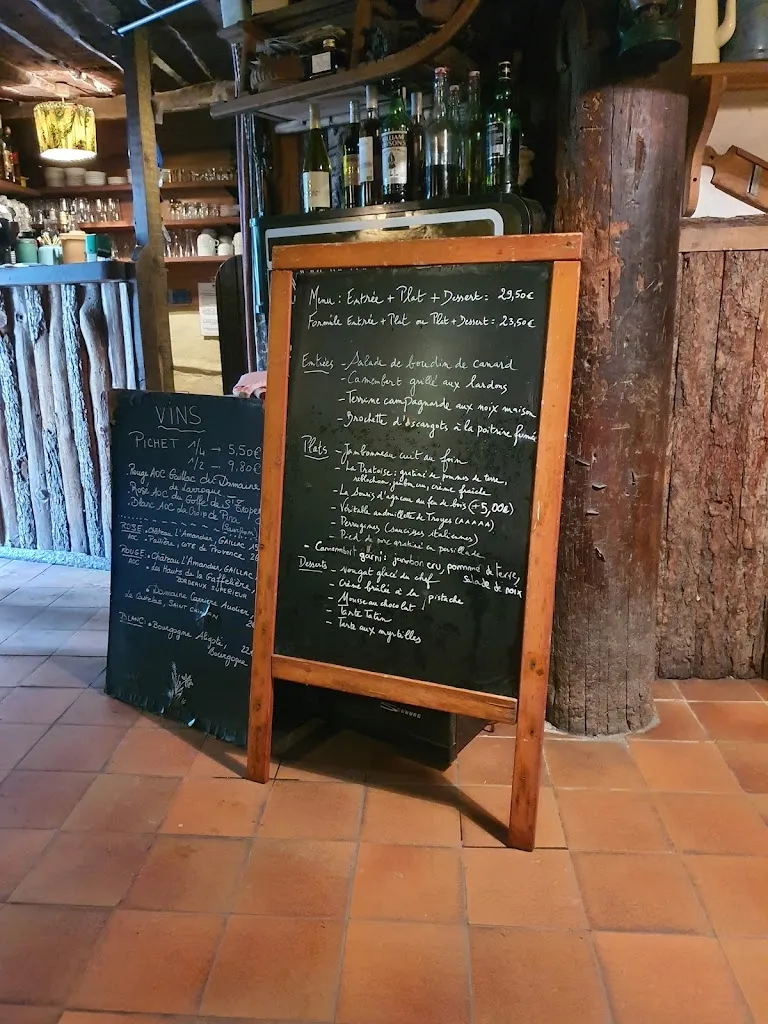 Menu : Entrée + Plat + Dessert : 29,50€
Formule Entrée + Plat ou Plat + Dessert : 23,50€
Entrées - Salade de boudin de canard
- Camembert grillé aux lardons
- Terrine campagnarde aux noix maison
- Brochette d'escargots à la poitrine fumée
Plats - Jambonneau cuit au foin
- La Pratoise : gratiné de pommes de terre,
reblochon, jambon cru, crème fraîche
- La Souris d'agneau au feu de bois (+5,00€)
- Véritable andouillette de Troyes (AAAAA)
- Perugines (saucisses italiennes)
- Pied de porc gratiné en persillade
- Camembert garni : jambon cru, pomme de terre,
salade de noix
Desserts - Nougat glacé du chef
- Crème brûlée à la pistache
- Mousse au chocolat
- Tarte Tatin
- Tarte aux myrtilles
VINS
PICHET 1/4 → 5,50€
1/2 → 9,80€
Rouge AOC Gaillac du Domaine
de Larroque
Rosé AOC du Golfe de St Tropez
Blanc AOC
ROSÉ • Château L'Amandier, GAILLAC
AOC • CÔTE DE PROVENCE
ROUGE • Château L'Amandier, GAILLAC
AOC • Les Hauts de la Gaffelière,
BORDEAUX SUPÉRIEUR
• Domaine Carrière Audier,
SAINT CHINIAN
BLANC • Bourgogne Aligoté,
Bourgogne